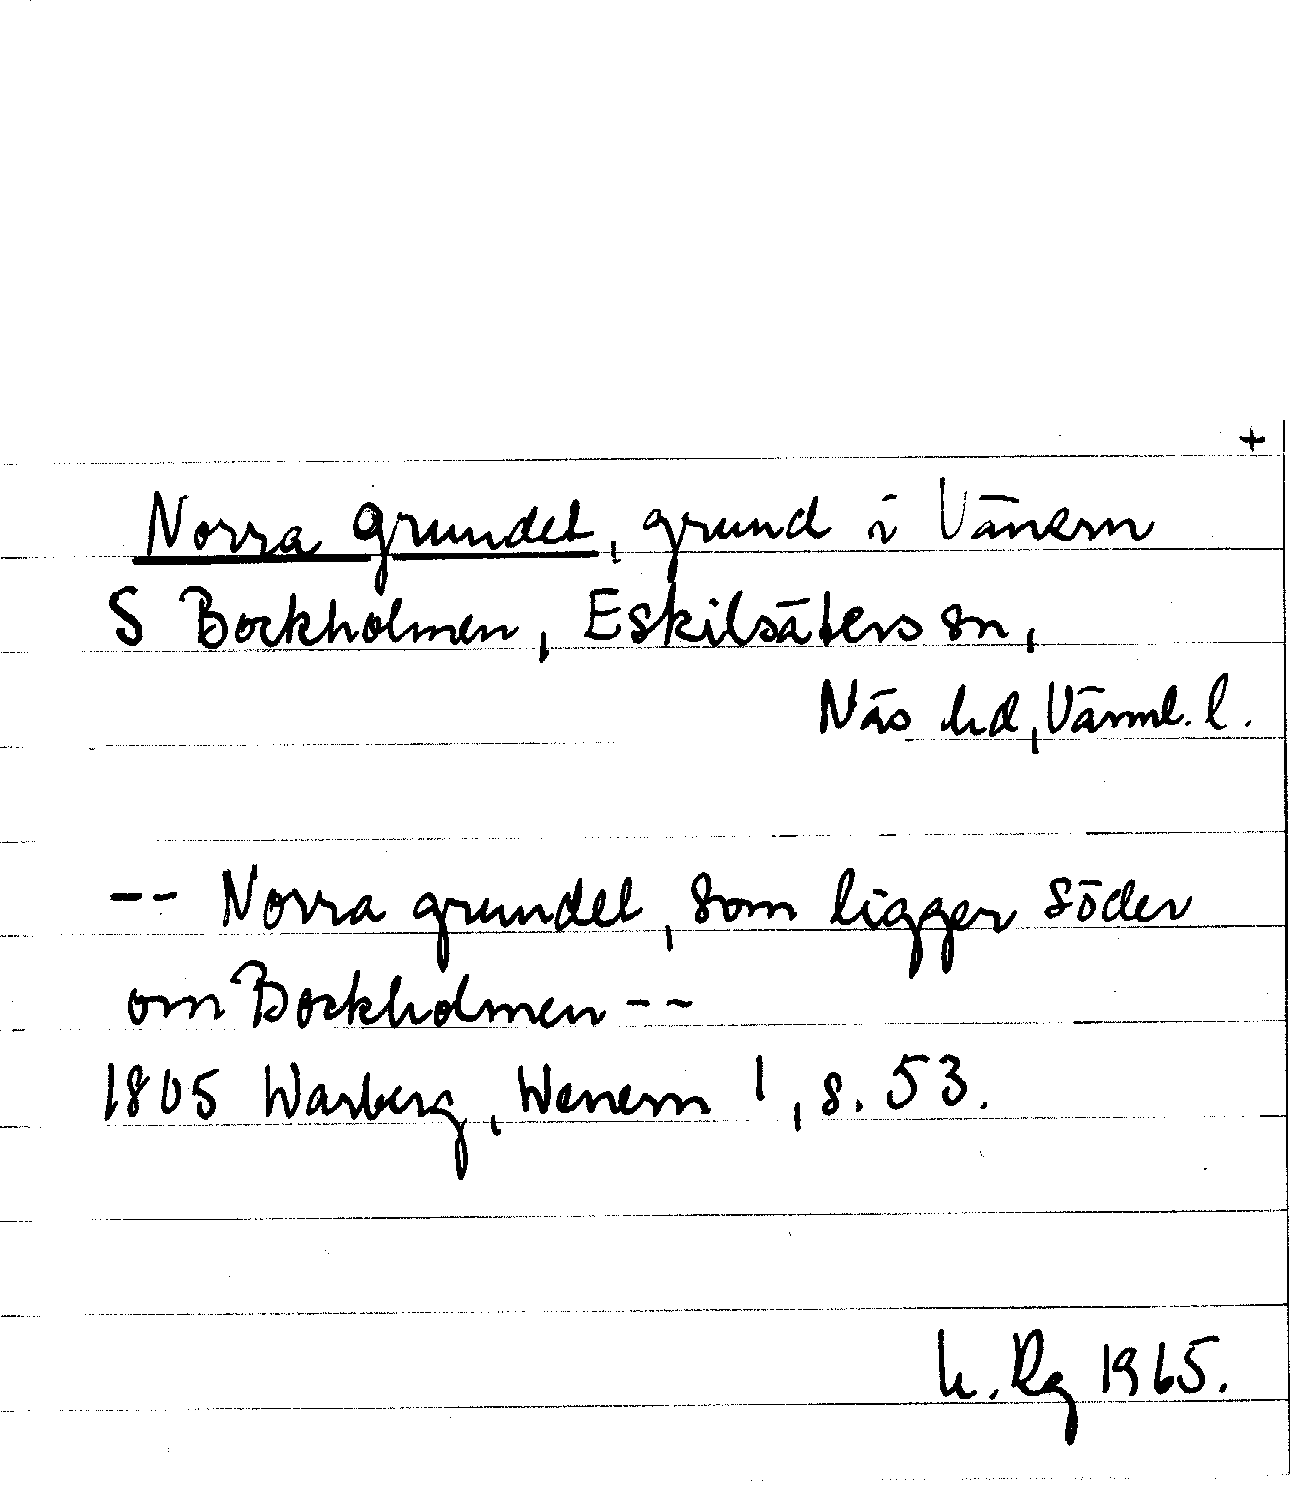 +
Norra grundet, grund i Vänern
S Bockholmen, Eskilsäters sn,
Näs hd, Värml. l.
-- Norra grundet, som ligger söder
om Bockholmen --
1805 Warberg, Wenern 1, s. 53.
h. Rg 1965.